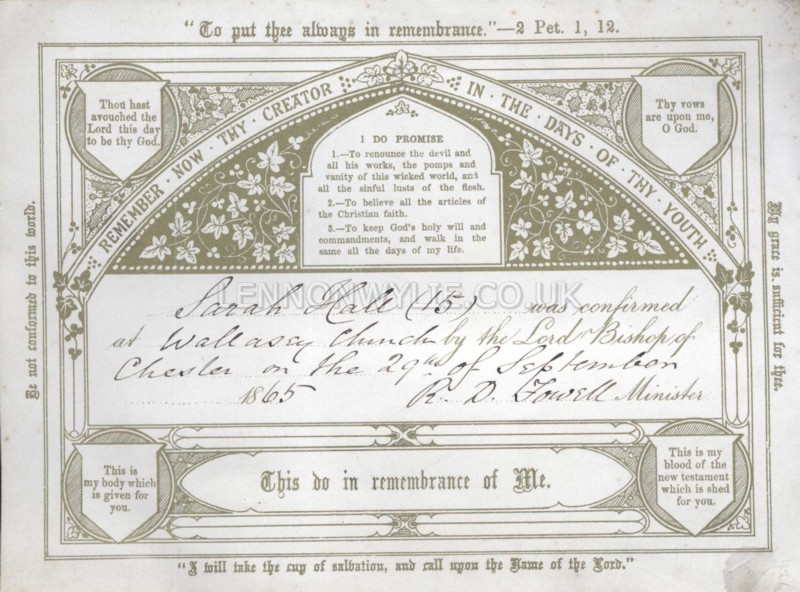 "To put thee always in remembrance."—2 Pet. 1, 12.
Thou hast
avouched the
Lord this day
to be thy God.
REMEMBER · NOW · THY · CREATOR · IN · THE · DAYS · OF · THY · YOUTH
Thy vows
are upon me,
O God.
I DO PROMISE
1.—To renounce the devil and
all his works, the pomps and
vanity of this wicked world, and
all the sinful lusts of the flesh.
2.—To believe all the articles of
the Christian faith.
3.—To keep God's holy will and
commandments, and walk in the
same all the days of my life.
Be not conformed to this world.
My grace is sufficient for thee.
LENNONWYLIE.CO.UK
Sarah Hall (15) was confirmed
at Wallasey Church by the Lord Bishop of
Chester on the 29th of September
1865 R. D. Fowell Minister
This is
my body which
is given for
you.
This do in remembrance of Me.
This is my
blood of the
new testament
which is shed
for you.
"I will take the cup of salvation, and call upon the Name of the Lord."